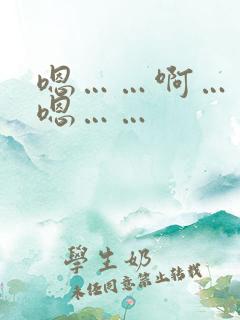 嗯……啊…
嗯……
學生奶
未經同意禁止轉載